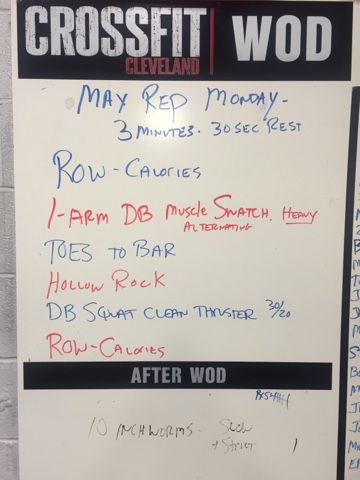 CROSSFIT WOD
CLEVELAND
MAX REP MONDAY-
3 MINUTES. 30 SEC REST
ROW-CALORIES
1-ARM DB MUSCLE SNATCH. HEAVY
ALTERNATING
TOES TO BAR
HOLLOW ROCK
DB SQUAT CLEAN THRUSTER 30/20
ROW-CALORIES
AFTER WOD
10 INCHWORMS - SLOW
+ STRICT